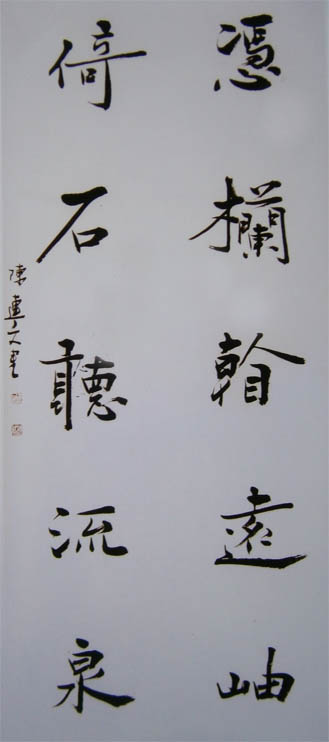 憑欄看遠岫
倚石聽流泉
陳連文書